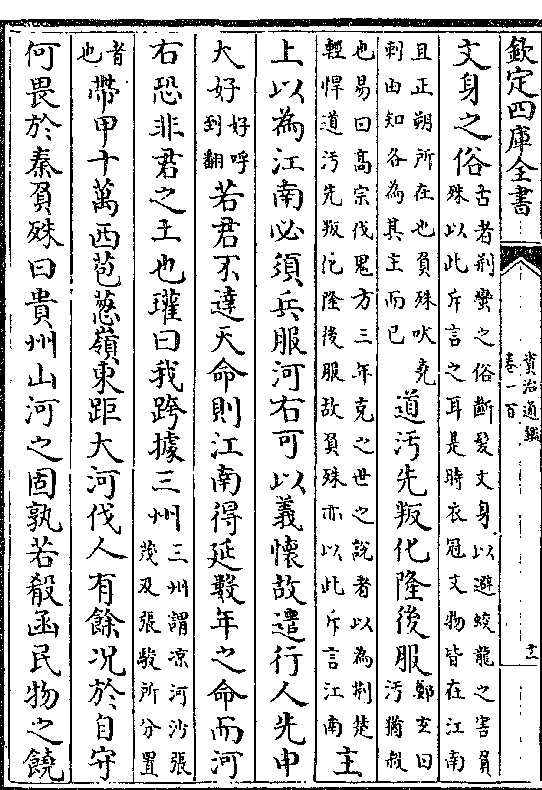 欽定四庫全書
資治通鑑
卷一百
十一
文身之俗古者荆蠻之俗斷髪文身以避蛟龍之害負
殊以此斥言之耳是時衣冠文物皆在江南
且正朔所在也負殊吠堯
刺由知各為其主而已道汚先叛化隆後服鄭𤣥曰
汚猶殺
也易曰髙宗伐鬼方三年克之世之說者以為荆楚
輕悍道汚先叛化隆後服故負殊亦以此斥言江南主
上以為江南必須兵服河右可以義懷故遣行人先申
大好好呼
到翻若君不達天命則江南得延數年之命而河
右恐非君之土也瓘曰我跨據三州三州謂凉河沙張
茂及張駿所分置
者
也帶甲十萬西苞葱嶺東距大河伐人有餘況於自守
何畏於秦負殊曰貴州山河之固孰若殽函民物之饒